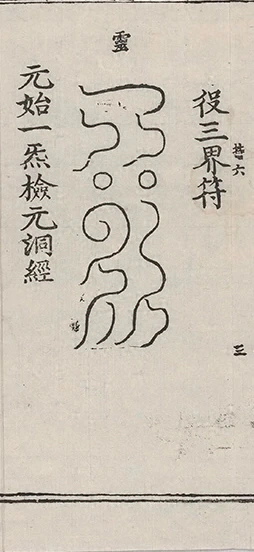 役三界符
靈
元始一炁檢元洞經
三